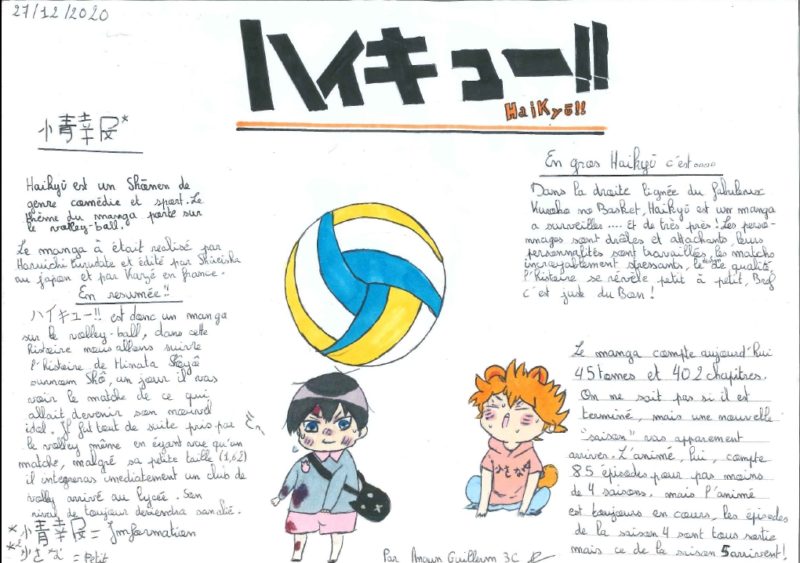 27/12/2020
ハイキュー!!
HaiKyū!!
Haikyū est un Shōnen de
genre comédie et sport. Le
thème du manga porte sur
le volley-ball.
Le manga à était realisé par
Haruichi Furudate et édité par
au japon et par Kazé en france.
En resumée!!
ハイキュー!! est donc un manga
sur le volley-ball, dans cette
histoire nous allons suivre
l'histoire de Hinata Shōyō
surnom Shō, un jour il vas
voir le matche de ce qui
allait devenir son nouvel
idol. Il fut tout de suite pris par
le volley même en éyant vue qu'un
matche, malgré sa petite taille (1,62)
il integreras imediatement un club de
volley arrivé au lycée. Son
rival de toujour deviendra son alié.
= Information
= Petit
En gros Haikyū c'est....
Dans la droite lignée du fabuleux
Kuroko no Basket, Haikyū est un manga
a surveiller .... Et de très près! Les perso-
nnages sont drôles et attachants, leurs
personnalités sont travaillées, les matchs
incroyablement stressants, le de qualité,
l'histoire se révèle petit à petit, Bref
c'est juste du Bon!
Le manga compte aujourd'hui
45 tomes et 402 chapitres.
On ne sait pas si il est
terminé, mais une nouvelle
"saison" vas apparement
arriver. L'animé, lui, compte
85 épisodes pour pas moins
de 4 saisons. mais l'animé
est toujours en cours, les épisodes
de la saison 4 sont tous sortie
mais ce de la saison 5 arrivent!
Par Guillerm 3C